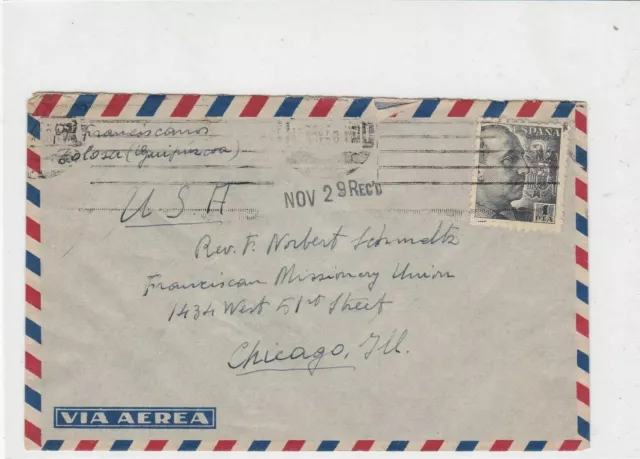 Franciscanos
Tolosa (Guipúzcoa)
ESPAÑA
U.S.A
NOV 29 REC'D
Rev. F. Norbert Schmaltz
Franciscan Missionery Union
1434 West 51st Street
Chicago, Ill.
VIA AEREA